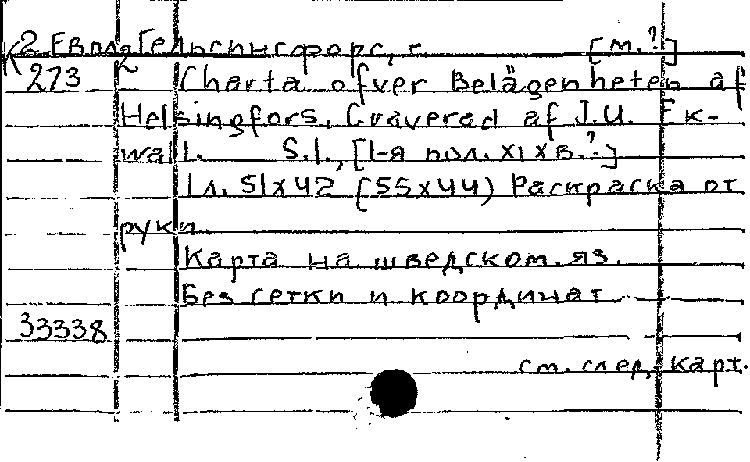 К 2 Евпл2 Гельсингфорс, г. [м.?]
273 Charta öfver Belägenheten af
Helsingfors. Graverad af J.U. Ek-
wall. S.l., [1-я пол. XIX в.?]
1 л. 51х42 (55х44) Раскраска от
руки
Карта на шведском яз.
Без сетки и координат
33338
см. след. карт.